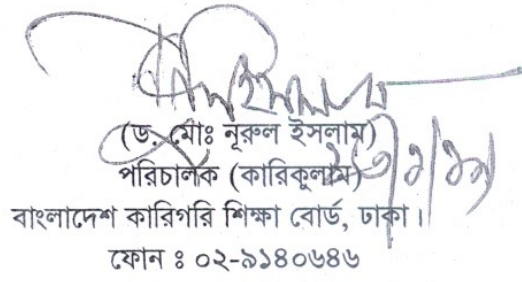 (ড. মোঃ নূরুল ইসলাম)
পরিচালক (কারিকুলাম)
বাংলাদেশ কারিগরি শিক্ষা বোর্ড, ঢাকা।
ফোন ঃ ০২-৯১৪০৬৪৬